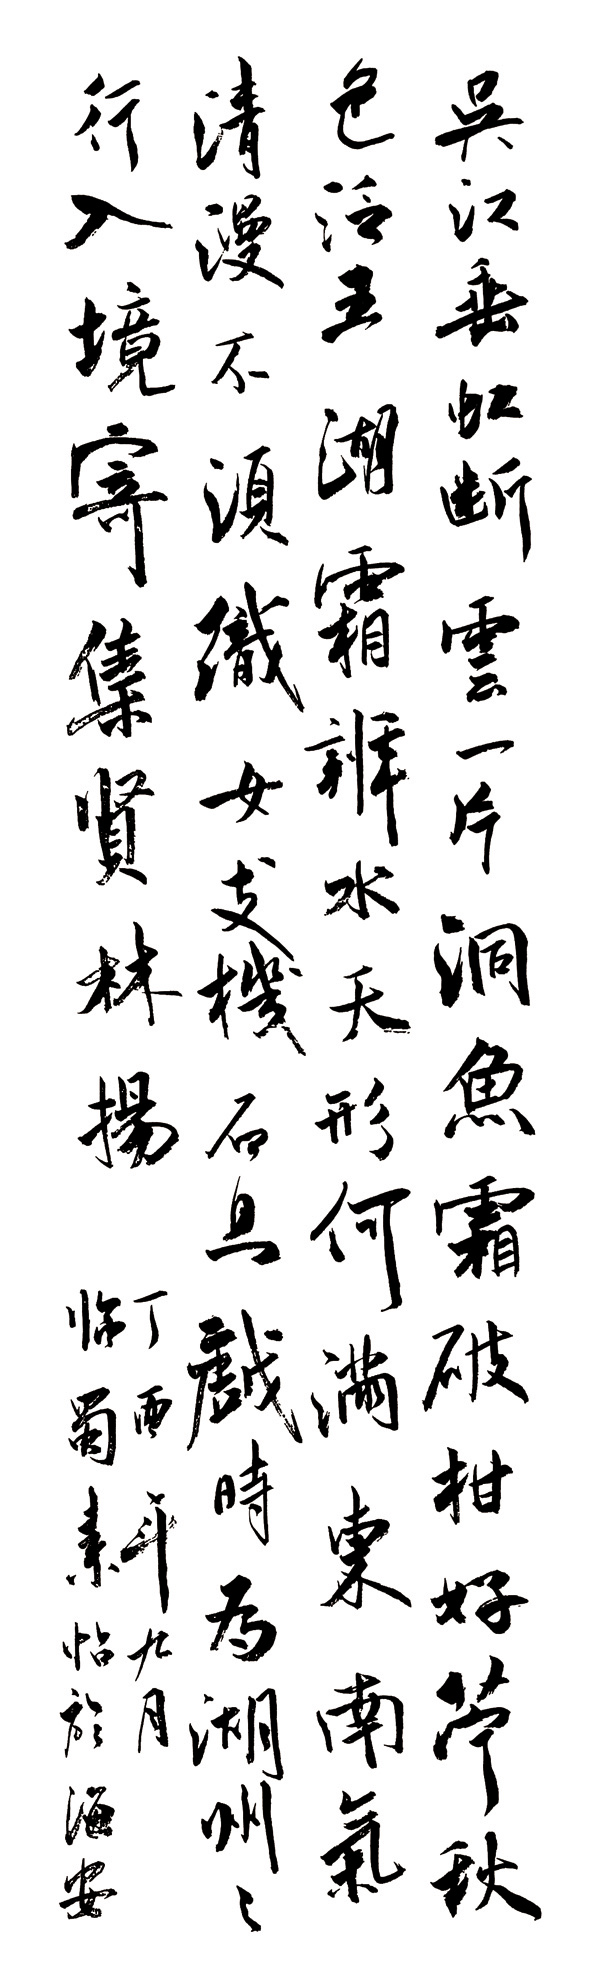 吳江垂虹斷雲一片洞魚霜破柑好苧秋
色泛五湖霜辨水天形何滿東南氣
清漫不須織女支機石且戲時為湖州之
行入境寄集賢林揚
丁酉年九月
臨蜀素帖於海安